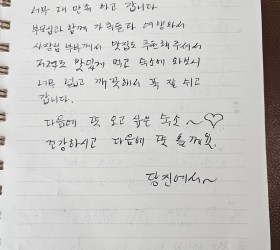 너무 대 만족 하고 갑니다
부모님과 함께 가족들과 여행와서
사장님 부부께서 맛집도 추천해 주셔서
저녁도 맛있게 먹고 숙소에 와보니
너무 넓고 깨끗해서 푹 잘 쉬고
갑니다.
다음에 또 오고 싶은 숙소~♡
건강하시고 다음에 또 올께요.
당진에서~